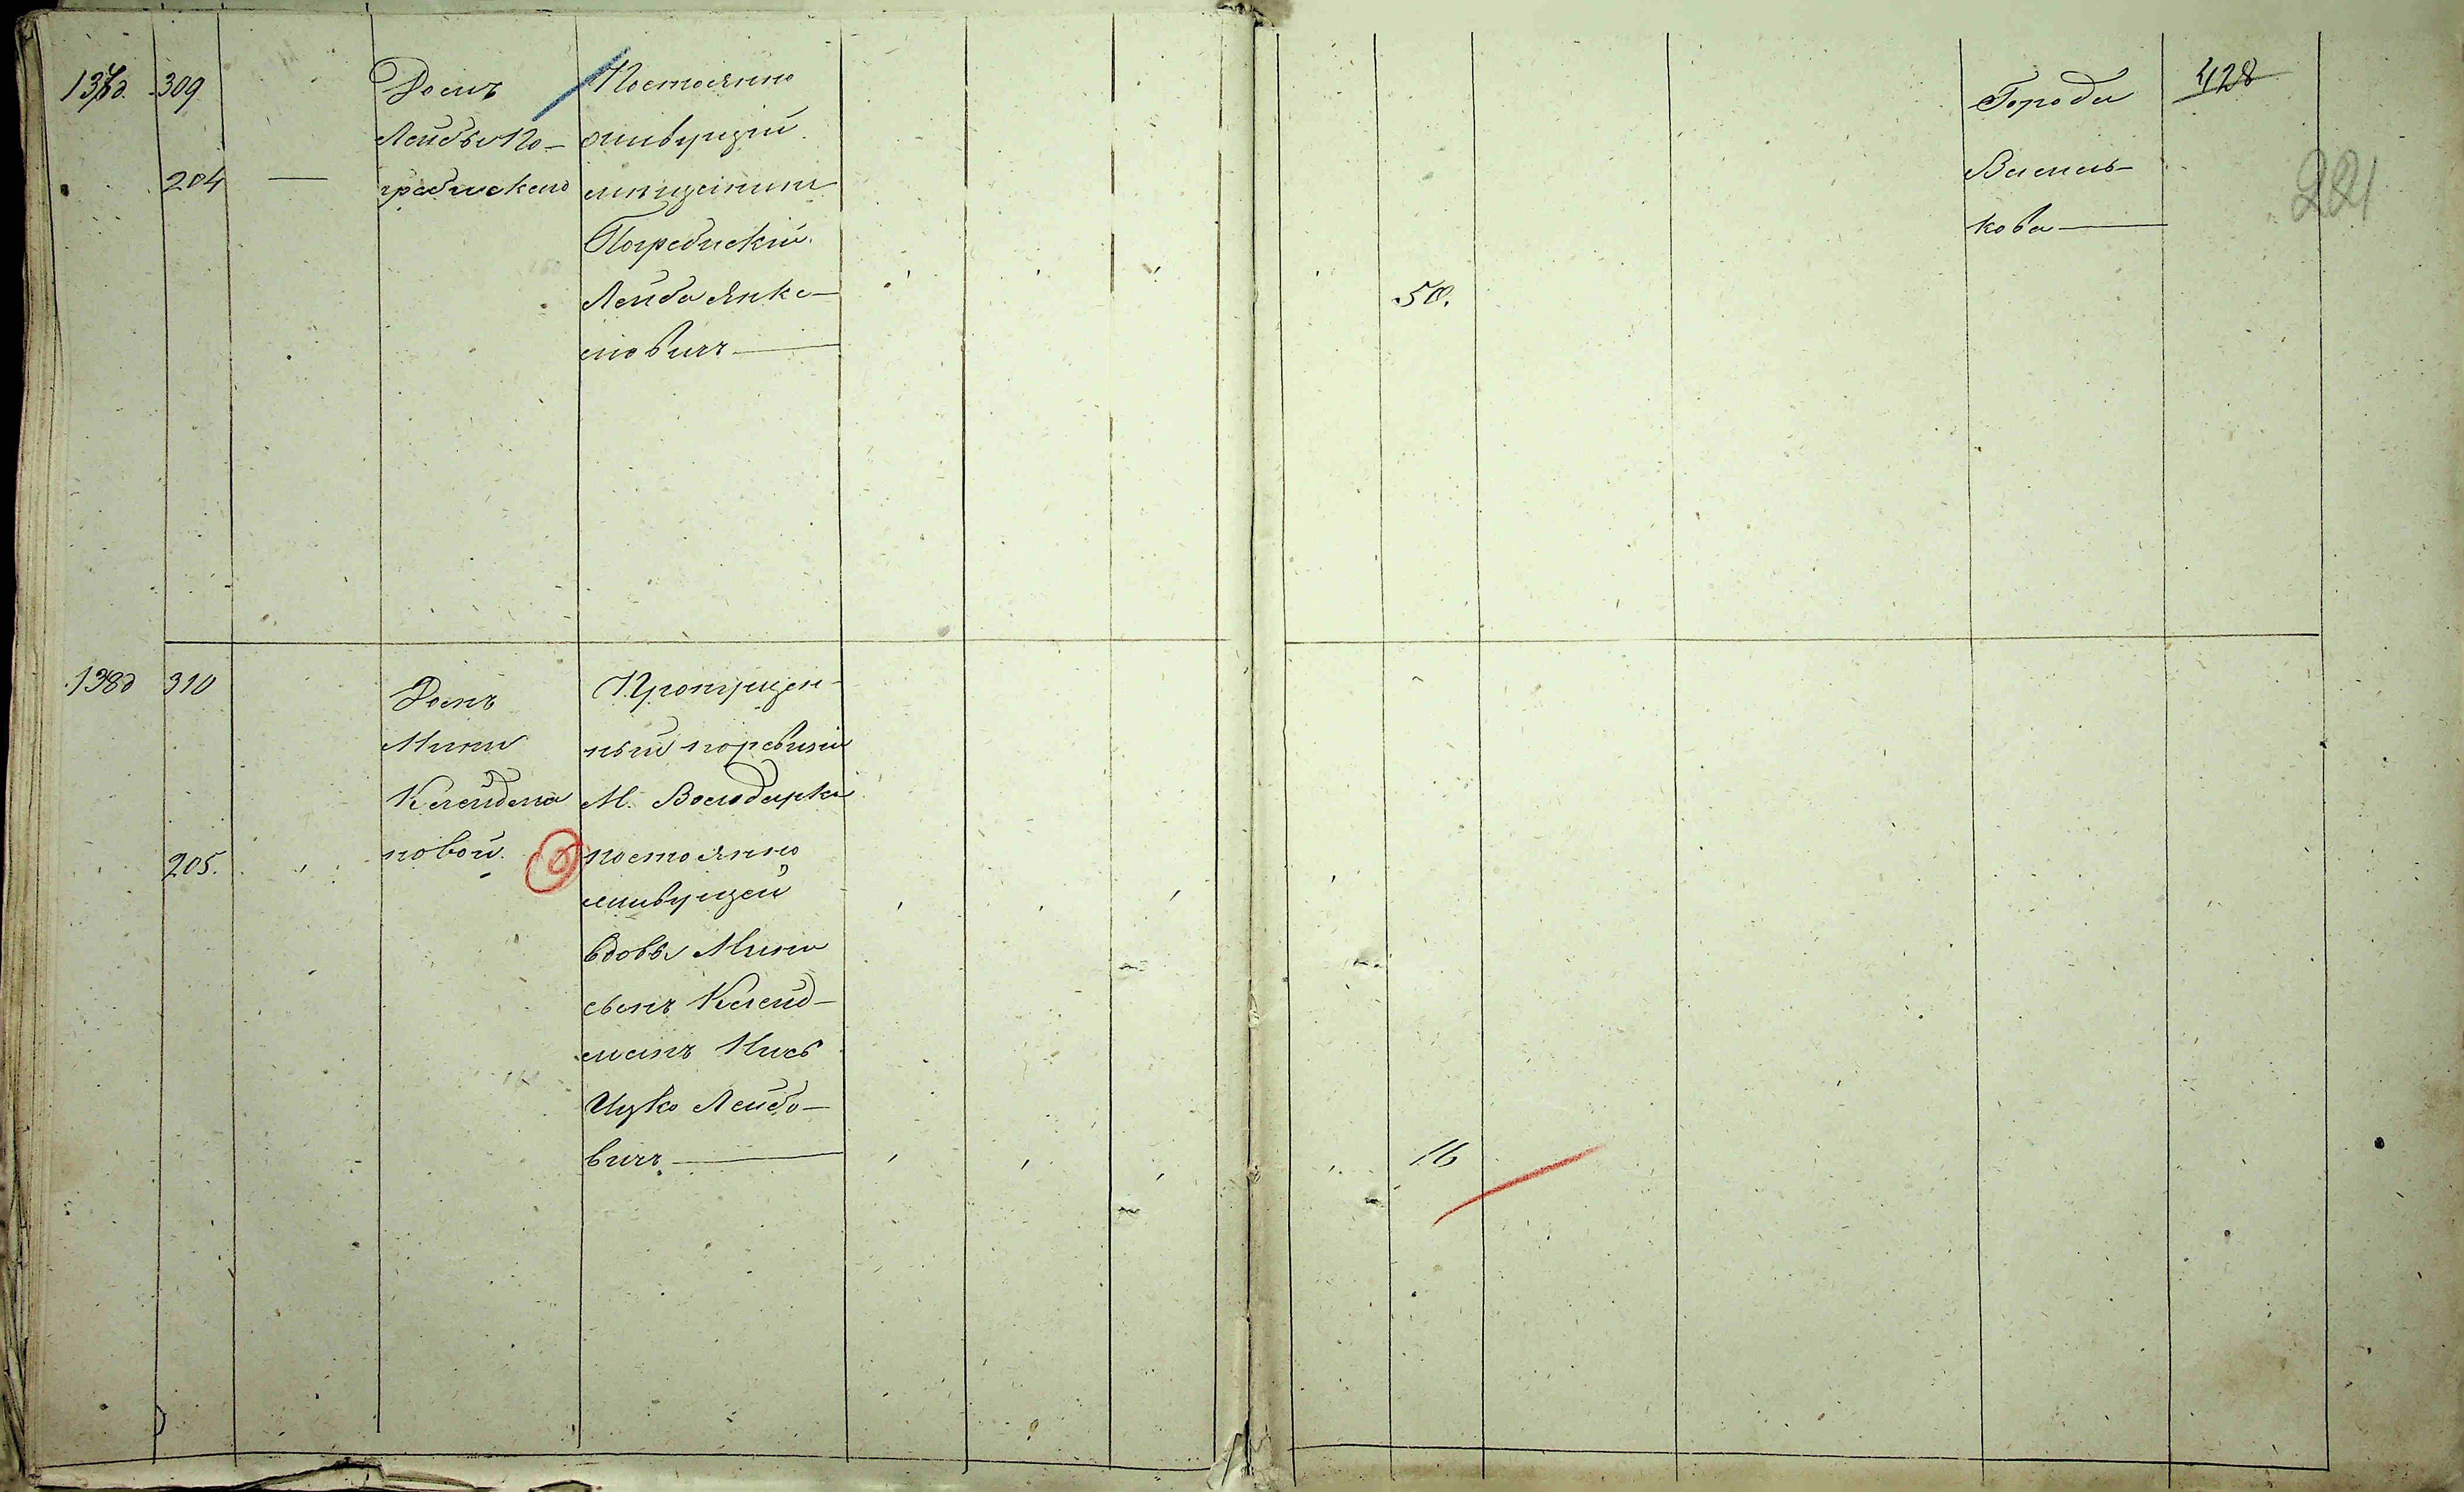 137д. 309
204 —
Домъ
Лейбы По-
гребискаго
Постоянно
живущій
мѣщанинъ
Погребискій
Лейба Янке-
левичъ —
50.
Города
Василь-
кова —
428
221
138д 310
205.
Домъ
Мини
Клейдма
новой.
Пропущен-
ный по ревизіи
М. Володарки
постоянно
живущей
вдовы Мини
сынъ Клейд-
манъ
Ицко Лейбо-
вичъ —
16